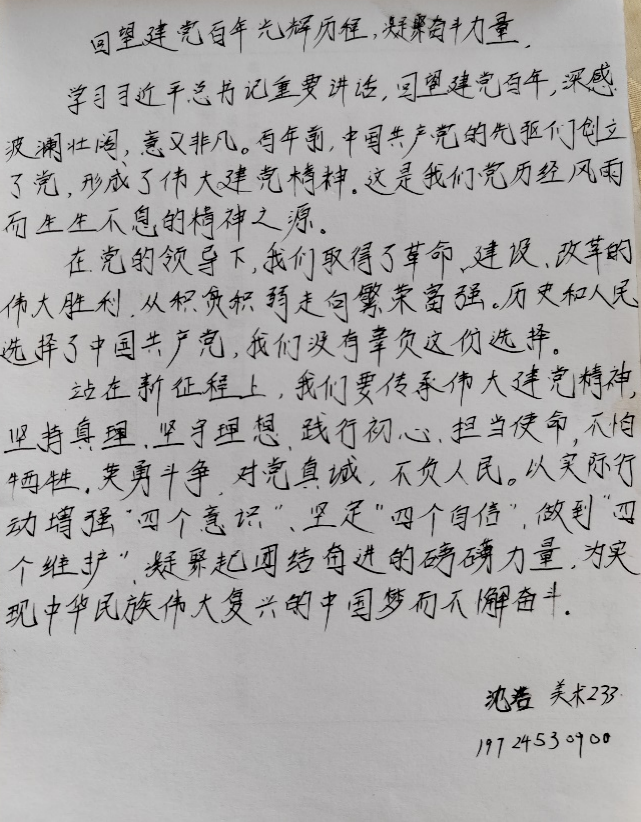 回望建党百年光辉历程,凝聚奋斗力量.
学习习近平总书记重要讲话,回望建党百年,深感
波澜壮阔,意义非凡。百年前,中国共产党的先驱们创立
了党,形成了伟大建党精神.这是我们党历经风雨
而生生不息的精神之源。
在党的领导下,我们取得了革命、建设、改革的
伟大胜利,从积贫积弱走向繁荣富强。历史和人民
选择了中国共产党,我们没有辜负这份选择。
站在新征程上,我们要传承伟大建党精神,
坚持真理、坚守理想、践行初心、担当使命,不怕
牺牲.英勇斗争,对党真诚,不负人民。以实际行
动增强“四个意识”、坚定“四个自信”,做到“四
个维护”,凝聚起团结奋进的磅礴力量,为实
现中华民族伟大复兴的中国梦而不懈奋斗.
沈浩 美术233
19724530900